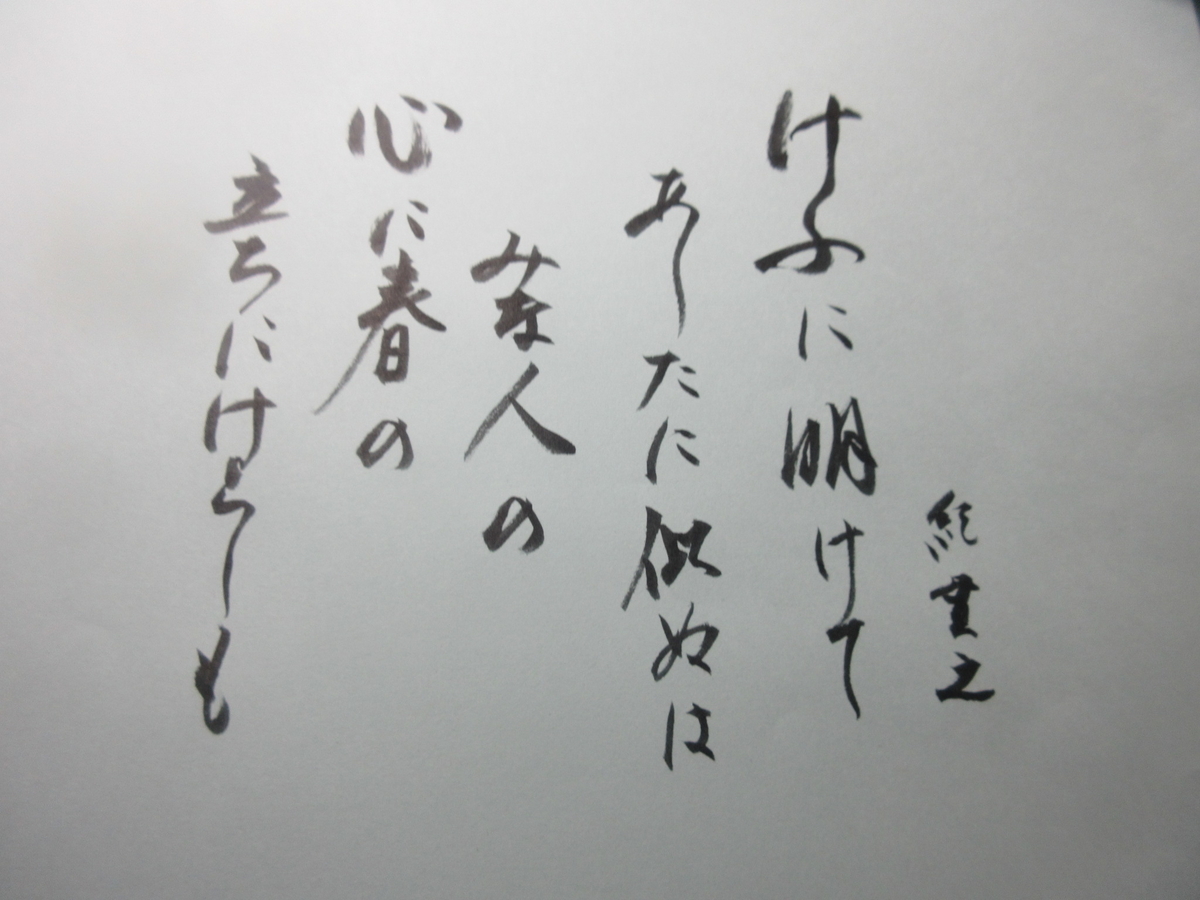 紀貫之
けふに明けて
あしたに似ぬは
みな人の
心に春の
立ちにけらしも